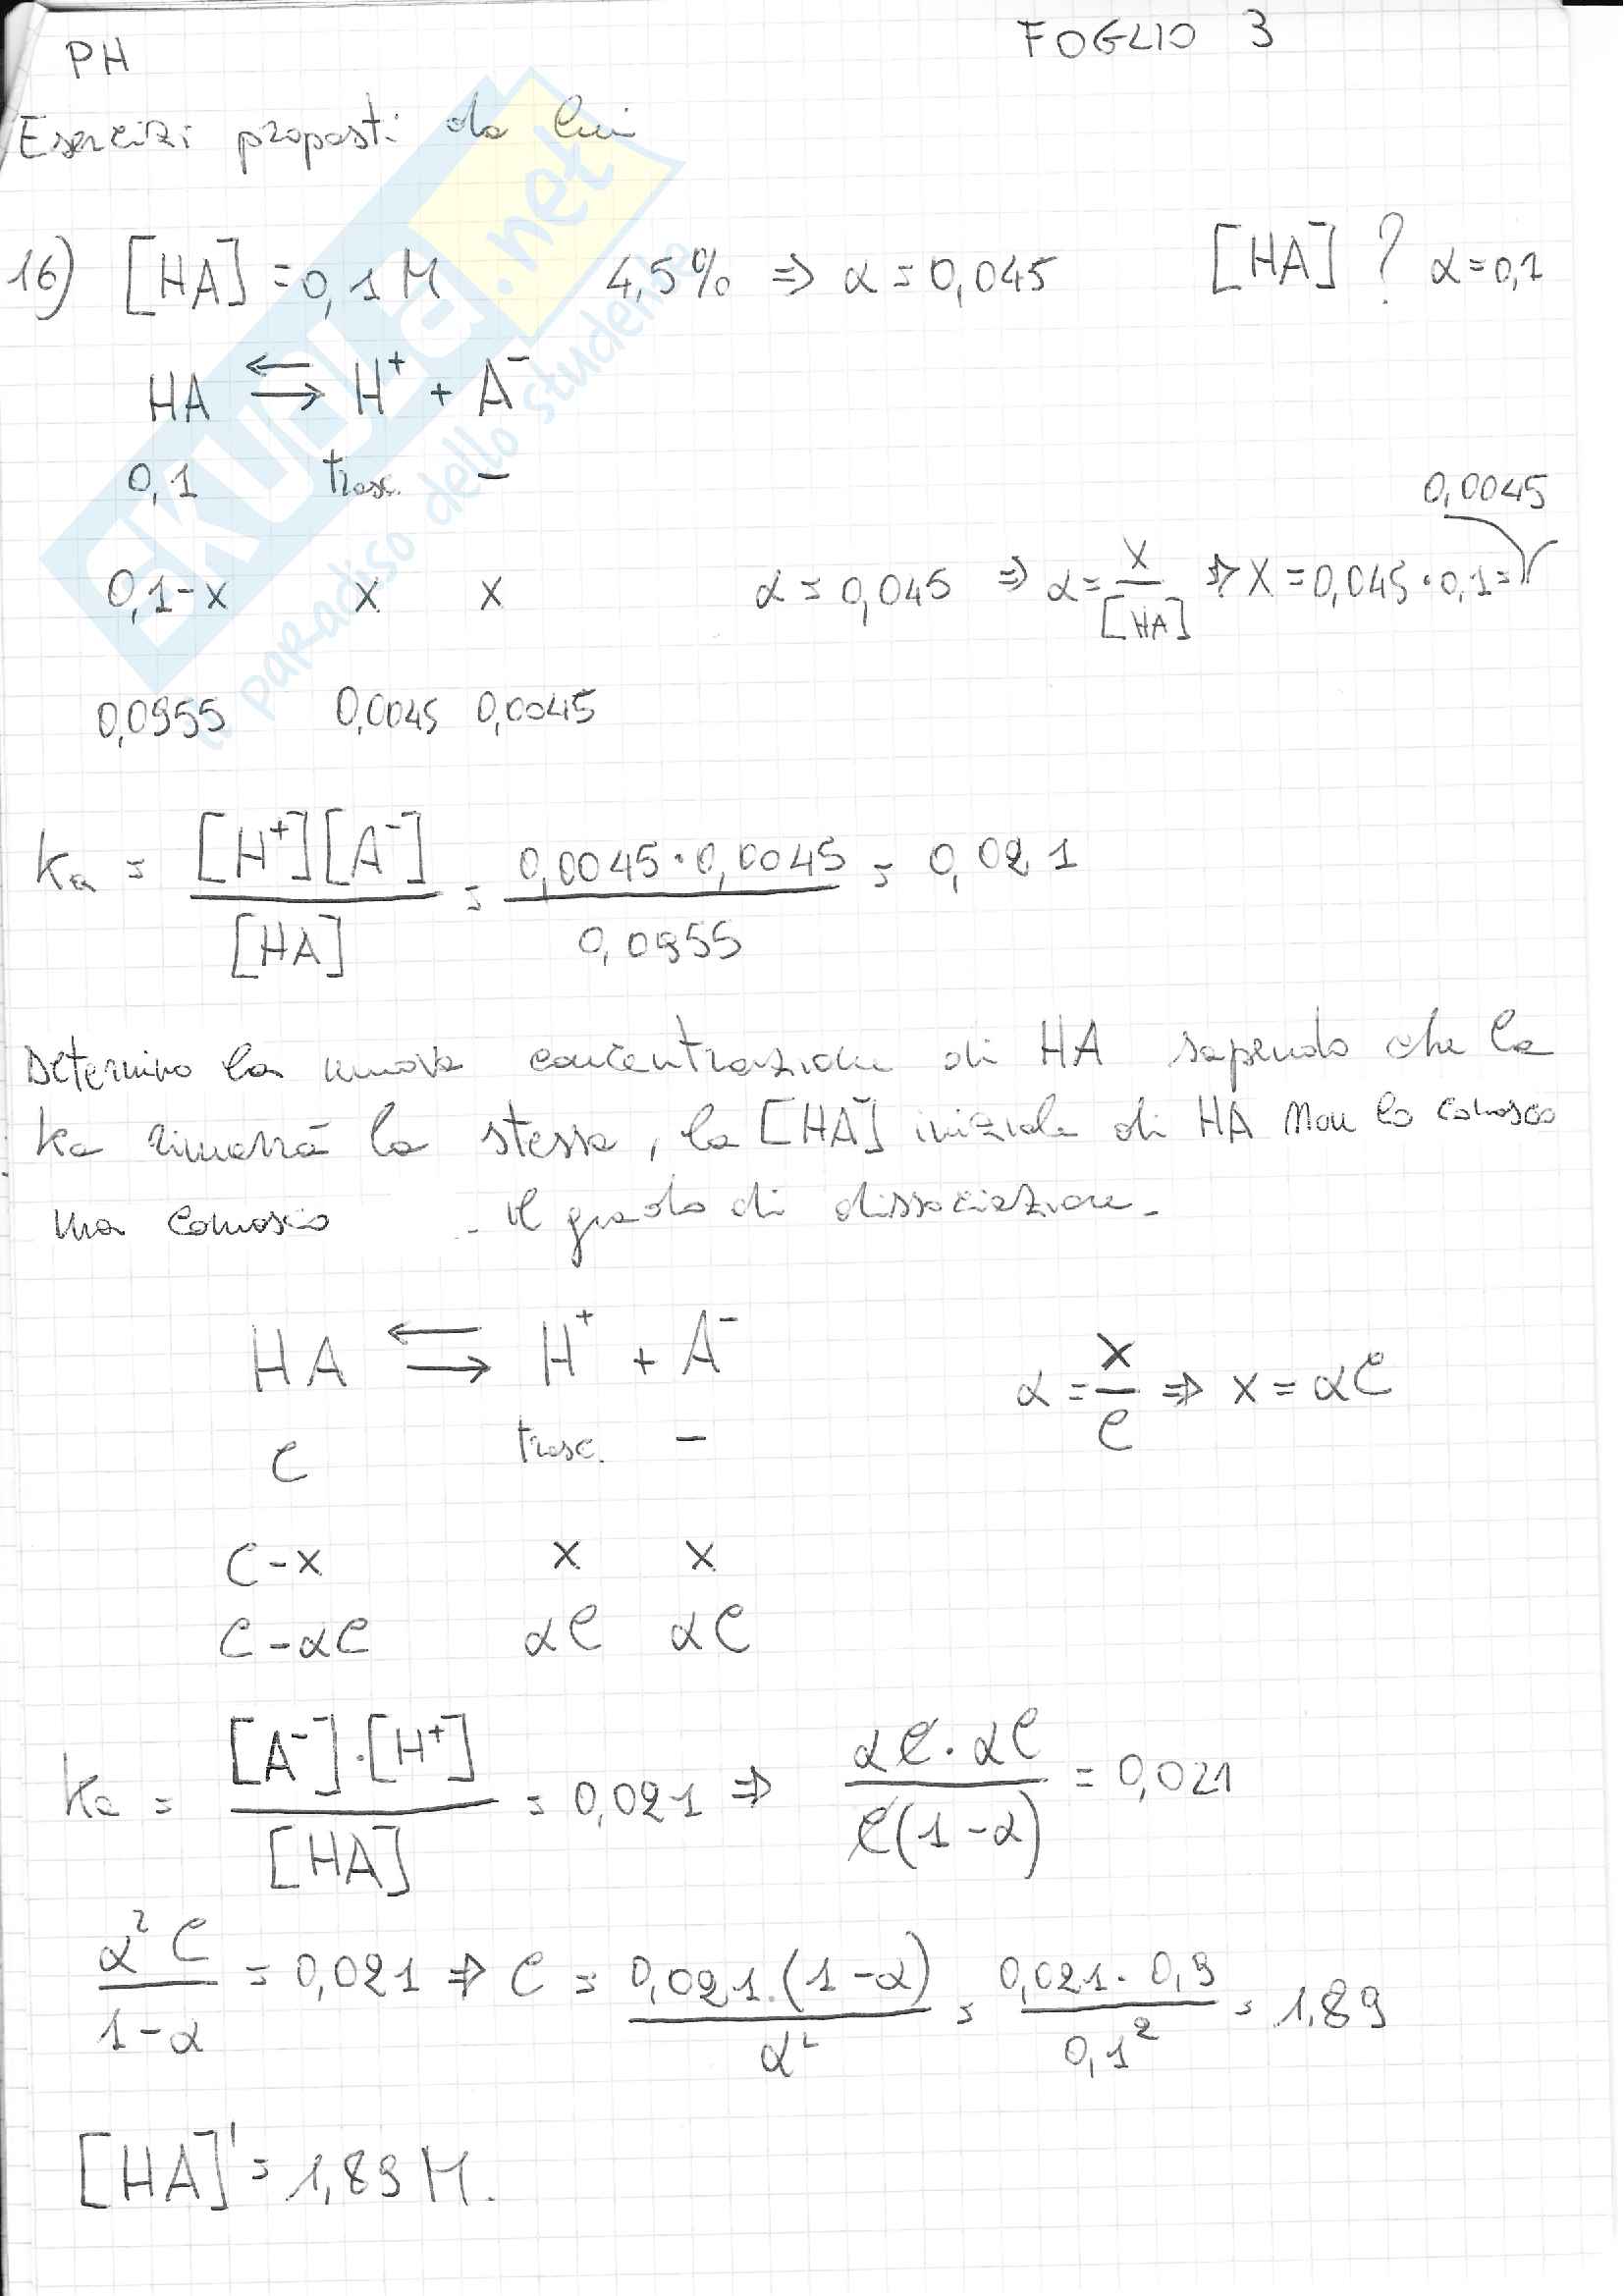 PH
FOGLIO 3
Esercizi proposti da lui
16) [HA] = 0,1 M 4,5% ⇒ α = 0,045 [HA] ? α = 0,1
HA ⇄ H⁺ + A⁻
0,1 trasc. –
0,0045
0,1-x x x α = 0,045 ⇒ α = x/[HA] ⇒ x = 0,045 · 0,1 =
0,0955 0,0045 0,0045
Ka = [H⁺][A⁻]/[HA] = 0,0045 · 0,0045/0,0955 = 0,021
Determino la nuova concentrazione di HA sapendo che la
Ka rimarrà la stessa, la [HA] iniziale di HA non la conosco
ma conosco il grado di dissociazione.
HA ⇄ H⁺ + A⁻
α = x/C ⇒ x = αC
C trasc. –
C-x x x
C-αC αC αC
Ka = [A⁻]·[H⁺]/[HA] = 0,021 ⇒ αC · αC/C(1-α) = 0,021
α²C/1-α = 0,021 ⇒ C = 0,021·(1-α)/α² = 0,021 · 0,9/0,1² = 1,89
[HA]' = 1,89 M.
SKUOLA.net
il paradiso dello studente